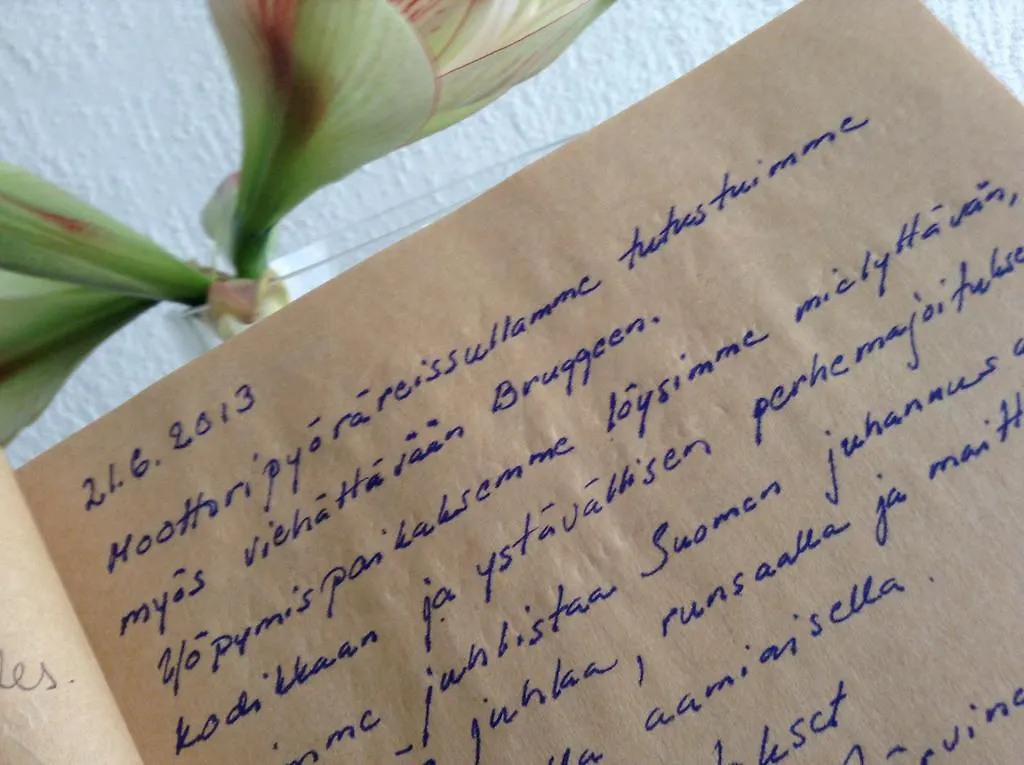 21.6.2013
Moottoripyöräreissullamme tutustuimme
myös viehättävään Bruggeen.
Yöpymispaikaksemme löysimme miellyttävän,
kodikkaan ja ystävällisen perhemajoituksen
juhlistaa Suomen juhannus
juhlaa, runsaalla ja
aamiaisella.
les.